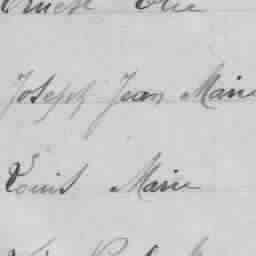 Ernest Elie
Joseph Jean Marie
Louis Marie